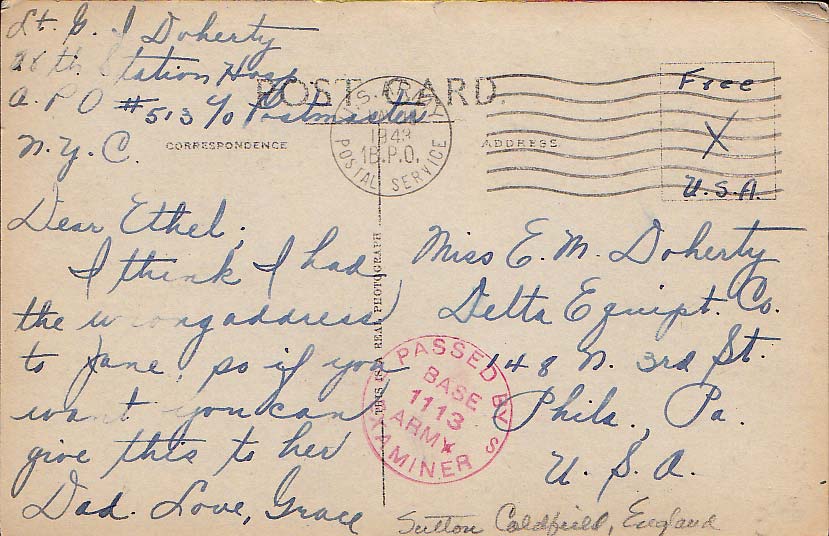 Lt. G. I Doherty
28th Station Hosp
A.P.O #513 c/o Postmaster
N.Y.C.
POST CARD
CORRESPONDENCE
ADDRESS
U.S. ARMY
1943
1B.P.O.
POSTAL SERVICE
Free
X
U.S.A.
Dear Ethel,
I think I had
the wrong address
to Jane, so if you
want you can
give this to her
Dad. Love, Grace
THIS IS A REAL PHOTOGRAPH
PASSED BY
BASE
1113
ARMY
EXAMINER
Miss E. M. Doherty
Delta Equipt. Co.
148 N. 3rd St.
Phila., Pa.
U.S.A.
Sutton Coldfield, England